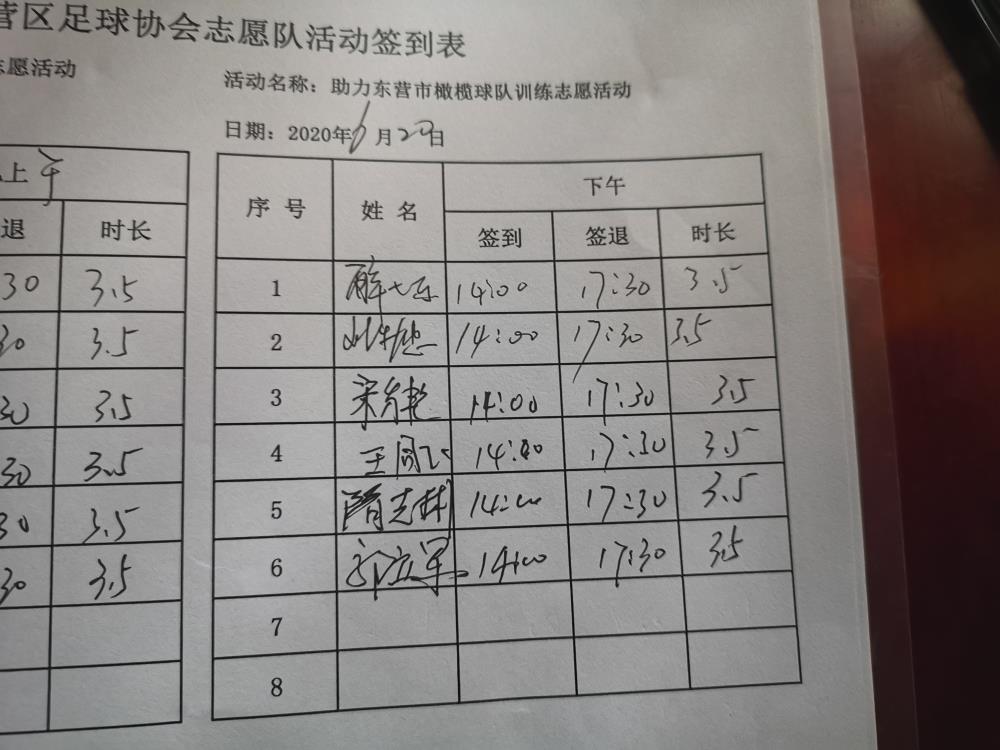 营区足球协会志愿队活动签到表
志愿活动
上午
退 时长
30 3.5
30 3.5
30 3.5
30 3.5
30 3.5
30 3.5
活动名称：助力东营市橄榄球队训练志愿活动
日期：2020年6月20日
序号 姓名 下午
签到 签退 时长
1 14:00 17:30 3.5
2 14:00 17:30 3.5
3 14:00 17:30 3.5
4 王同飞 14:00 17:30 3.5
5 隋志林 14:00 17:30 3.5
6 郭立军 14:00 17:30 3.5
7
8